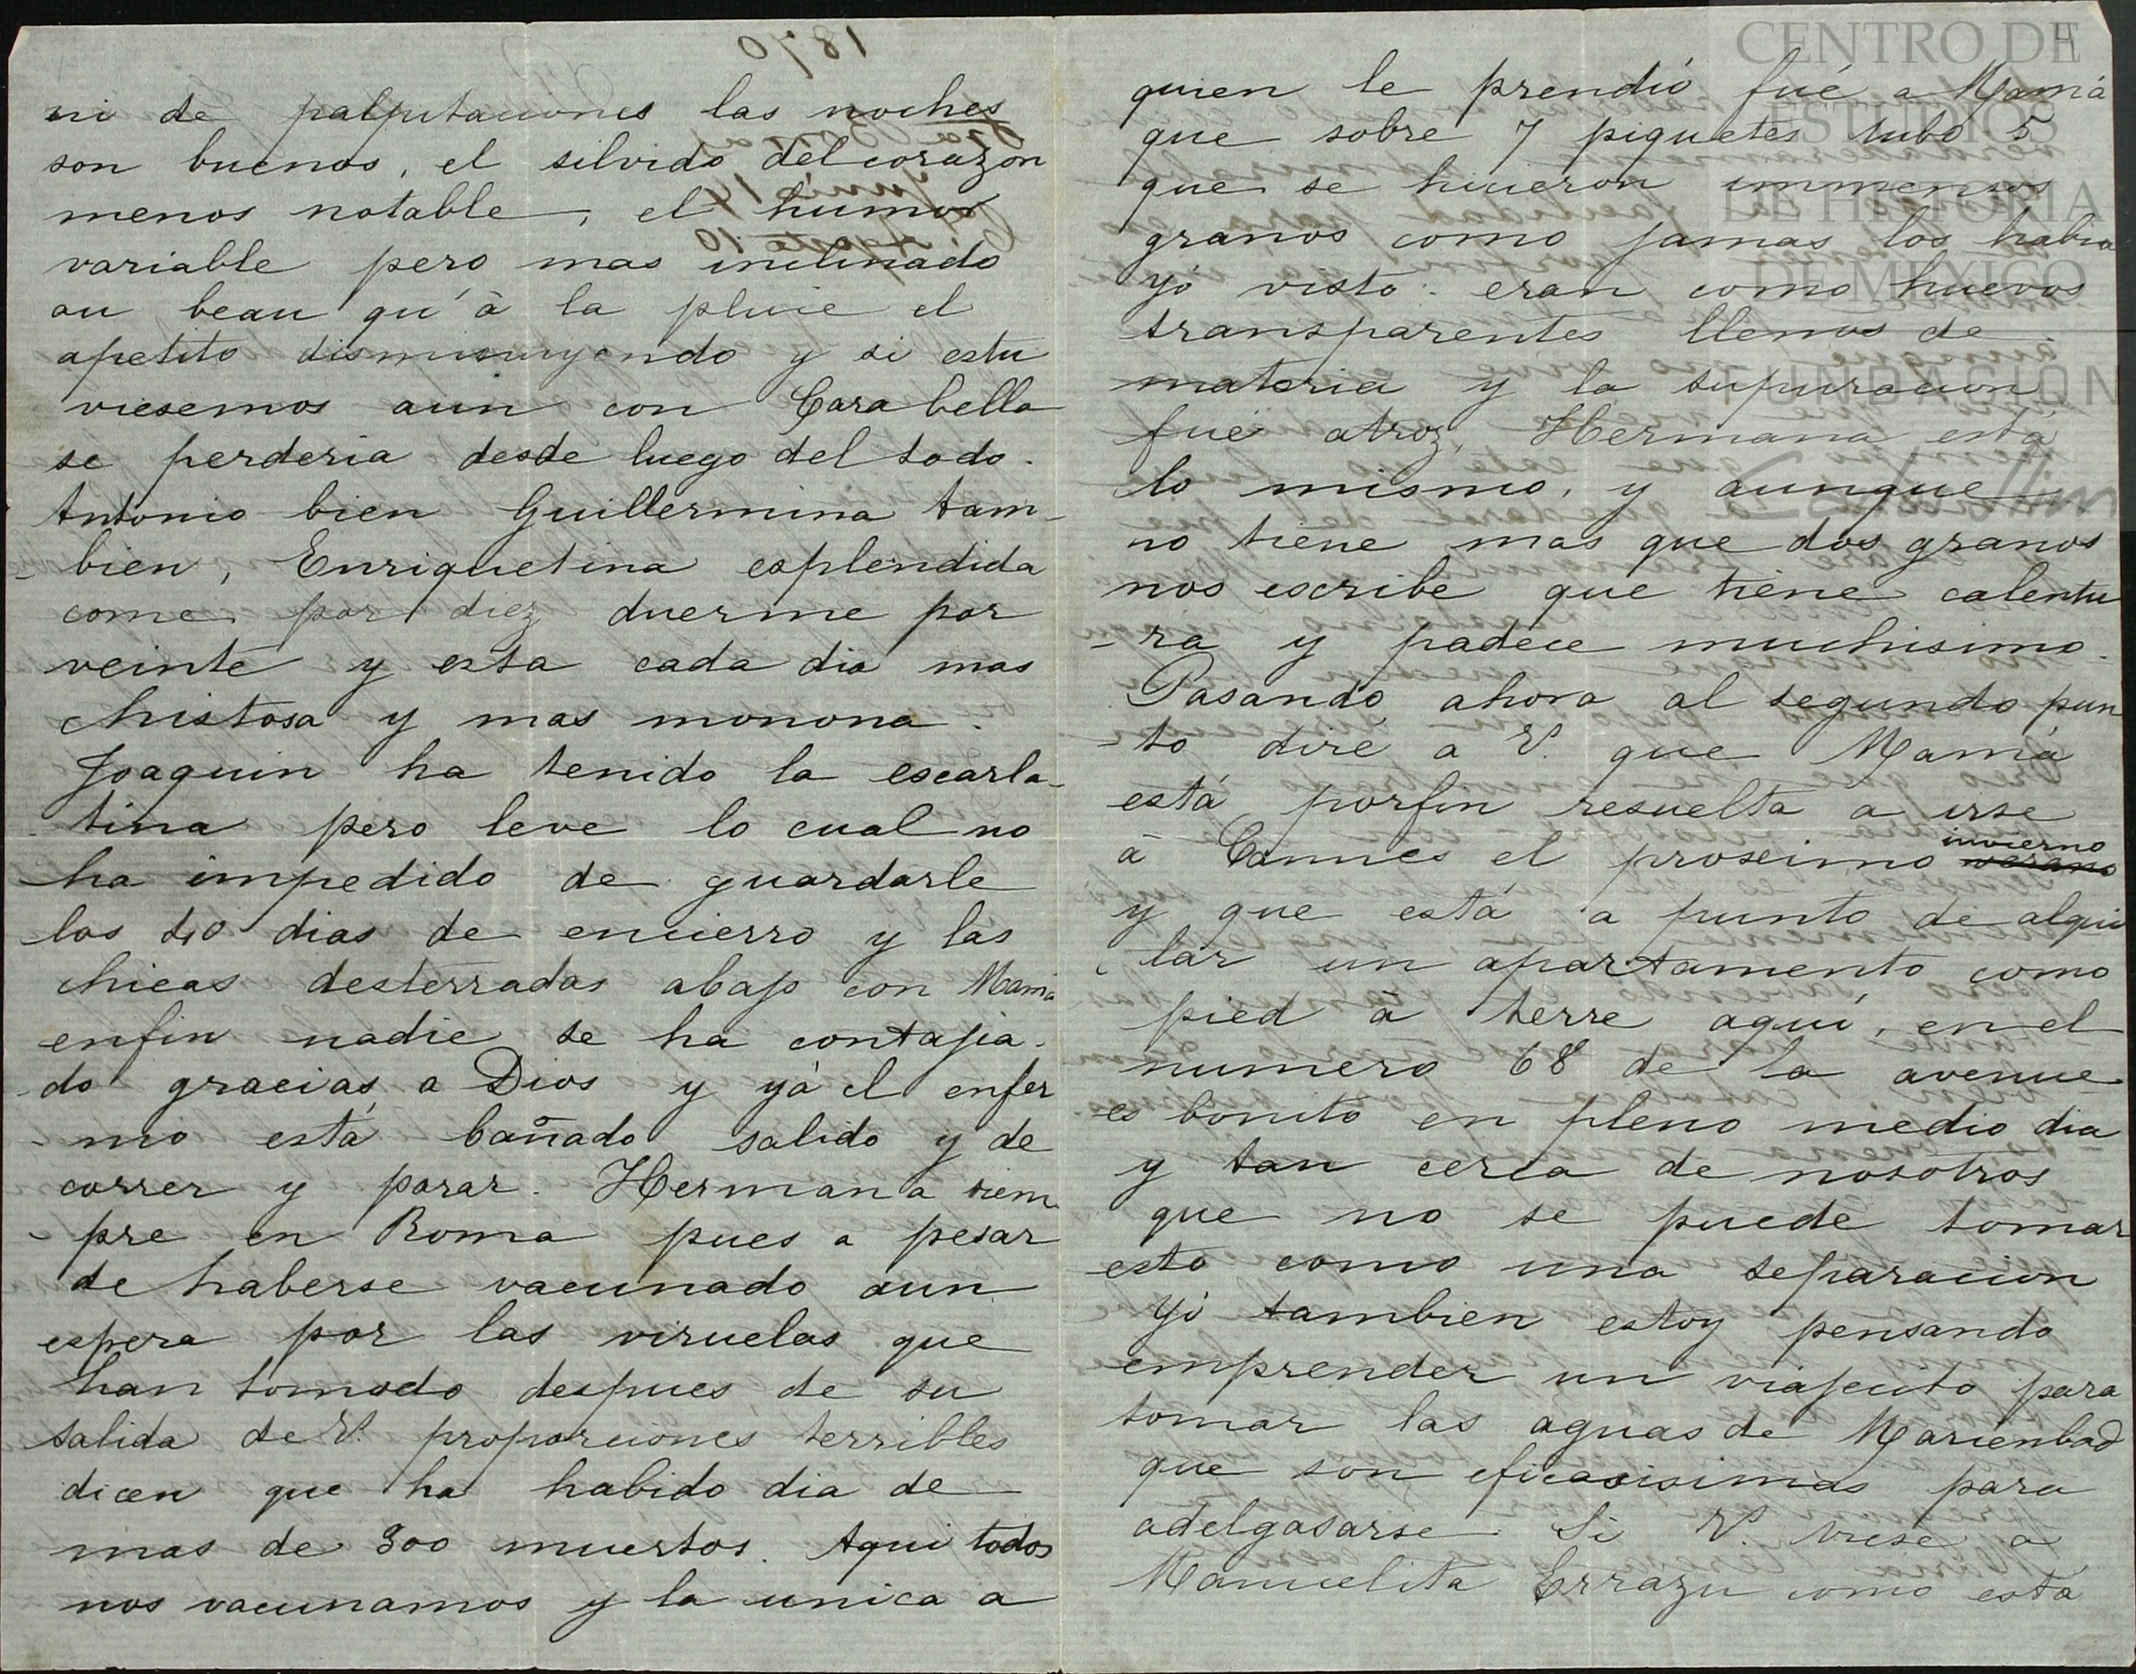 ni de palpitaciones las noches
son buenas, el silvido del corazon
menos notable, el humor
variable pero mas inclinado
au beau qu'à la pluie el
apetito dismuinuyendo y si estu
viesemos aun con Carabella
se perderia desde luego del todo.
Antonio bien Guillermina tam-
-bien, Enriquetina esplendida
come por diez duerme por
veinte y esta cada dia mas
chistosa y mas monona.
Joaquin ha tenido la escarla-
-tina pero leve lo cual no
ha impedido de guardarle
los 40 dias de encierro y las
chicas desterradas abajo con Mamá
enfin nadie se ha contajia-
-do gracias a Dios y yá el enfer
-mo está bañado salido y de
correr y parar. Hermana siem
-pre en Roma pues a pesar
de haberse vacunado aun
espera por las viruelas que
han tomado despues de su
salida de V. proporciones terribles
dicen que ha habido dia de
mas de 300 muertos. Aqui todos
nos vacunamos y la unica a
4
quien le prendió fué a Mamá
que sobre 7 piquetes tubo 5
que se hicieron immensos
granos como jamas los habia
yó visto. eran como huevos
transparentes llenos de
materia y la supuracion
fué atroz, Hermana está
lo mismo, y aunque
no tiene mas que dos granos
nos escribe que tiene calentu
-ra y padece muchisimo.
Pasando ahora al segundo pun
-to diré a V. que Mamá
está porfin resuelta a irse
à Cannes el proseimo verano invierno
y que está a punto de alqui
lar un apartamento como
pied à terre aquí, en el
numero 68 de la avenue
es bonito en pleno medio dia
y tan cerca de nosotros
que no se puede tomar
esto como una separacion
yó tambien estoy pensando
emprender un viajecito para
tomar las aguas de Marienbad
que son eficasisimas para
adelgasarse. Si V. viese a
Manuelita Errazu como está
1870
Junio 14
C. Agosto 10
CENTRO DE
ESTUDIOS
DE HISTORIA
DE MEXICO
FUNDACIÓN
Carlos Slim